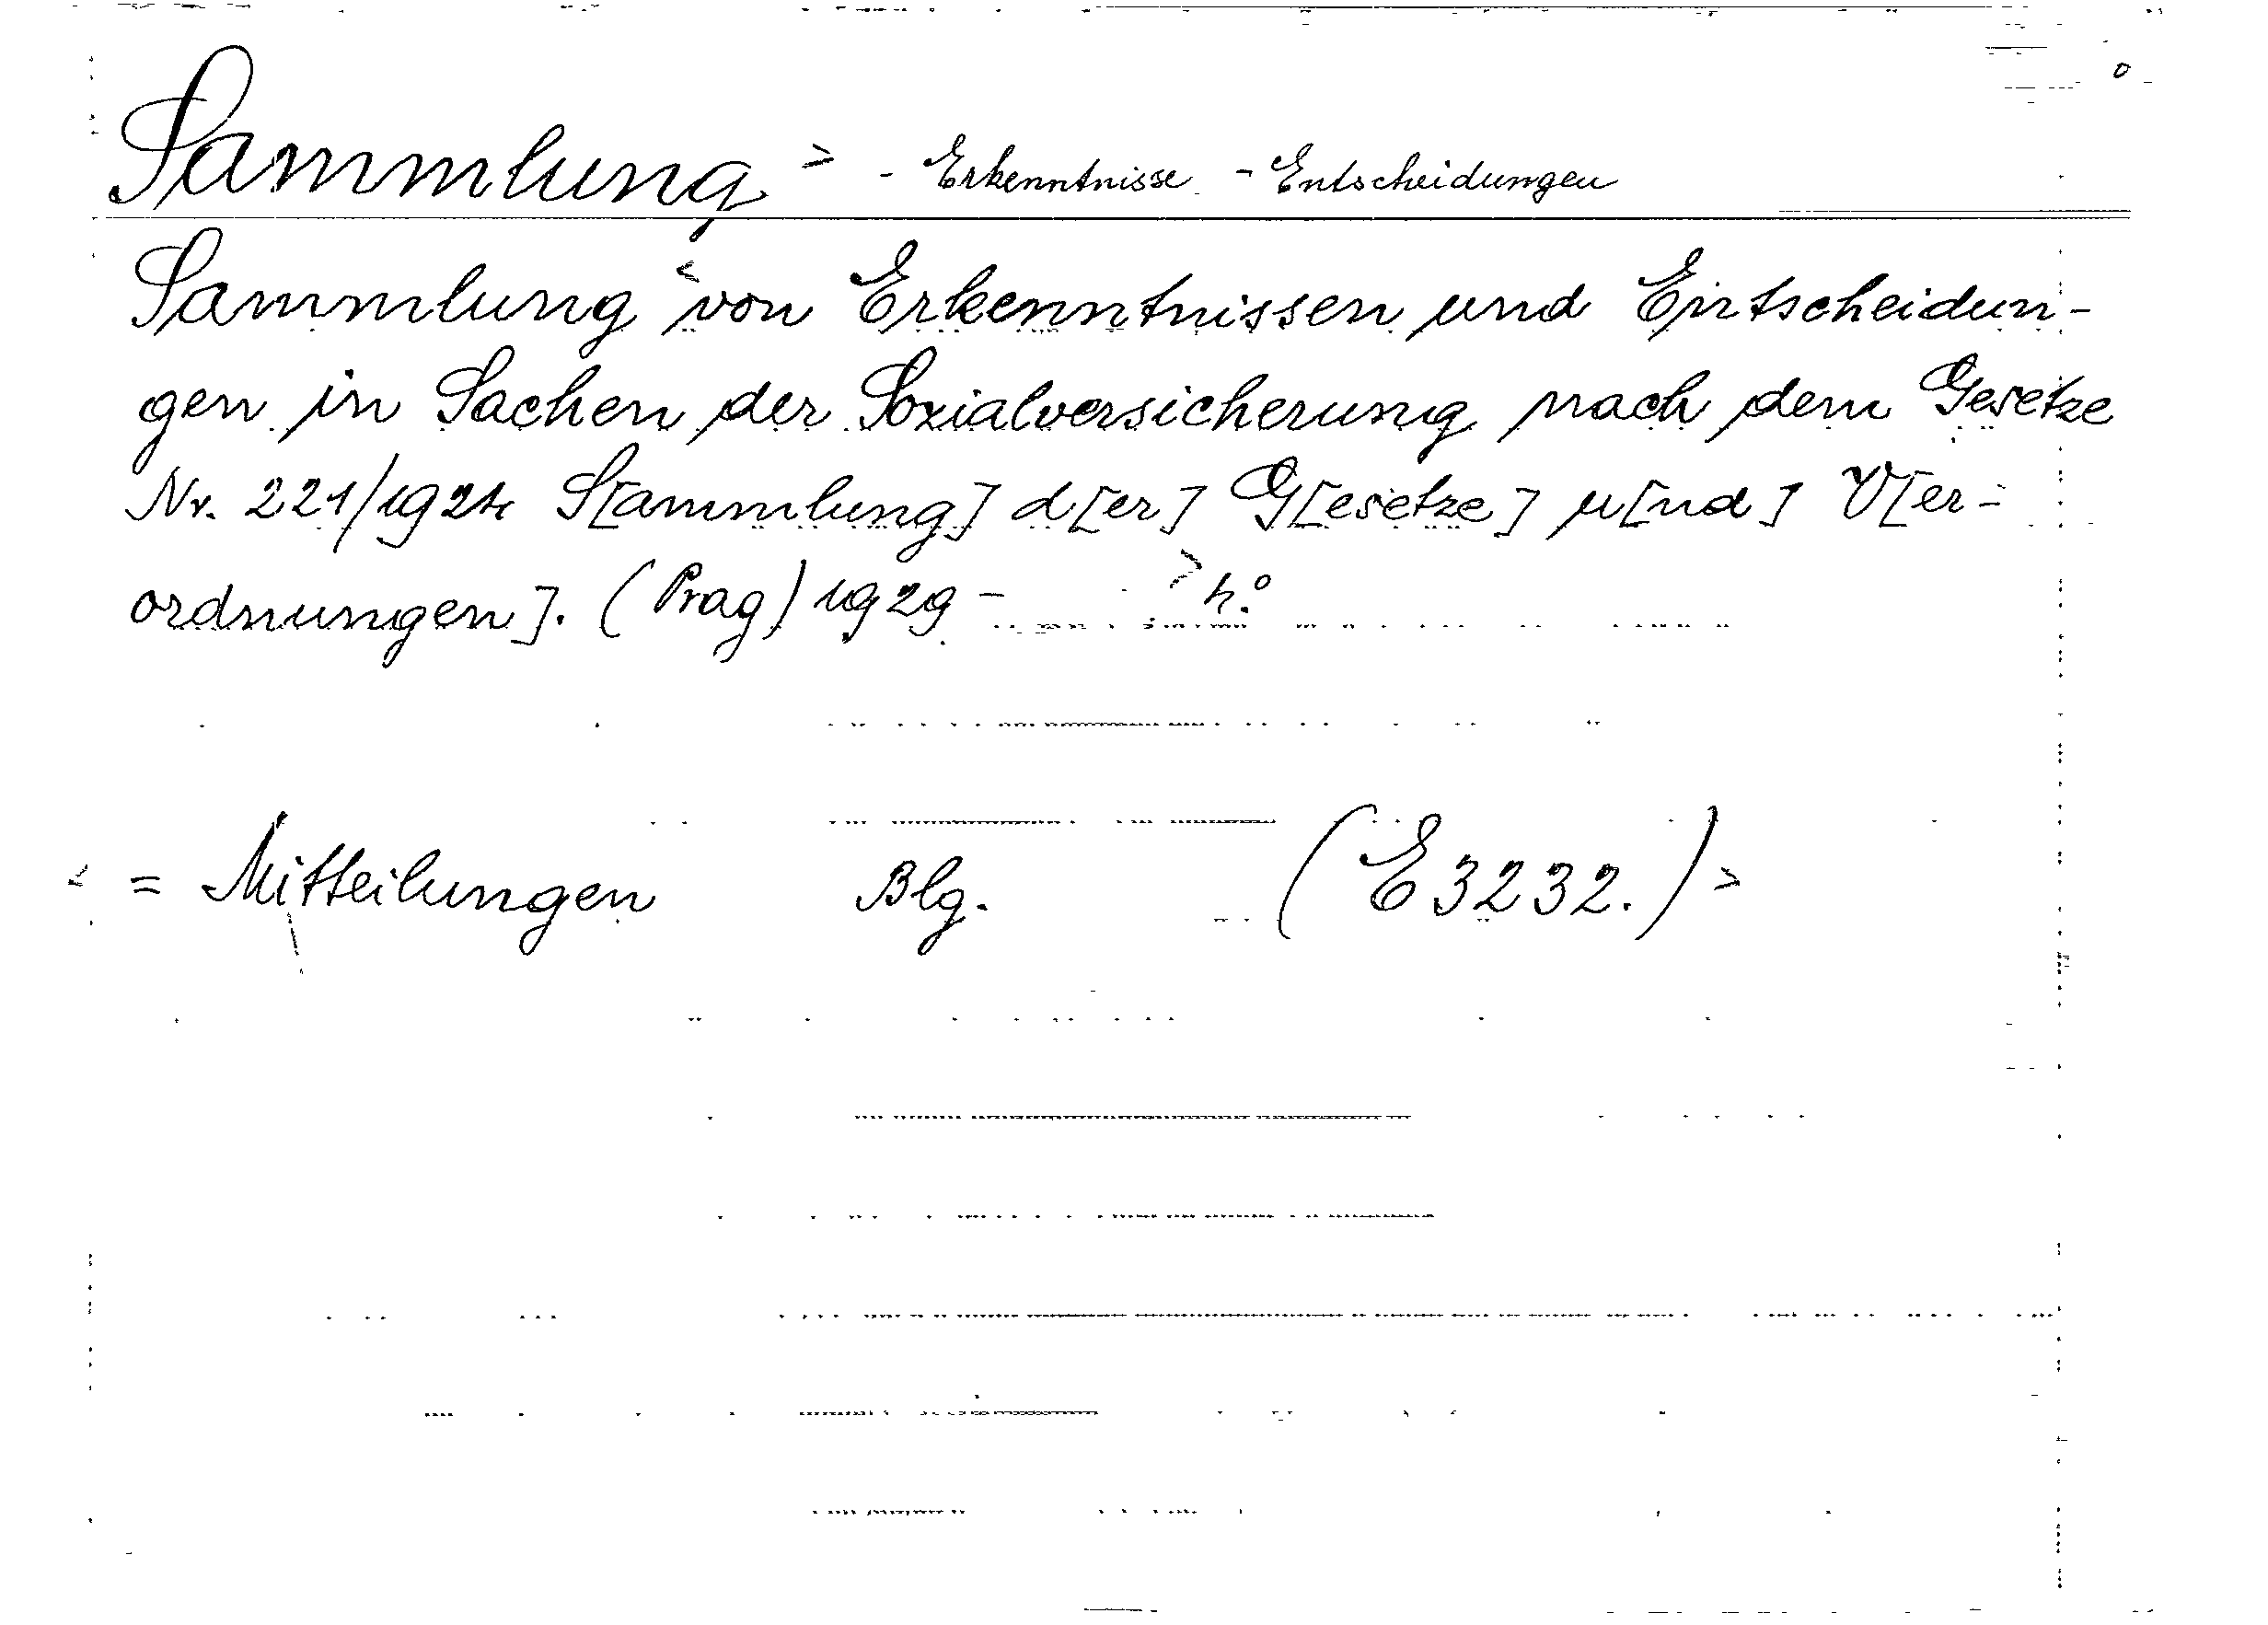 Sammlung > - Erkenntnisse - Entscheidungen
Sammlung < von Erkenntnissen und Entscheidun-
gen in Sachen der Sozialversicherung nach dem Gesetze
Nr. 221/1924 S[ammlung] d[er] G[esetze] u[nd] V[er-
ordnungen]. (Prag) 1929 - > 4.°
< = Mitteilungen Blg. (E 3232.) >